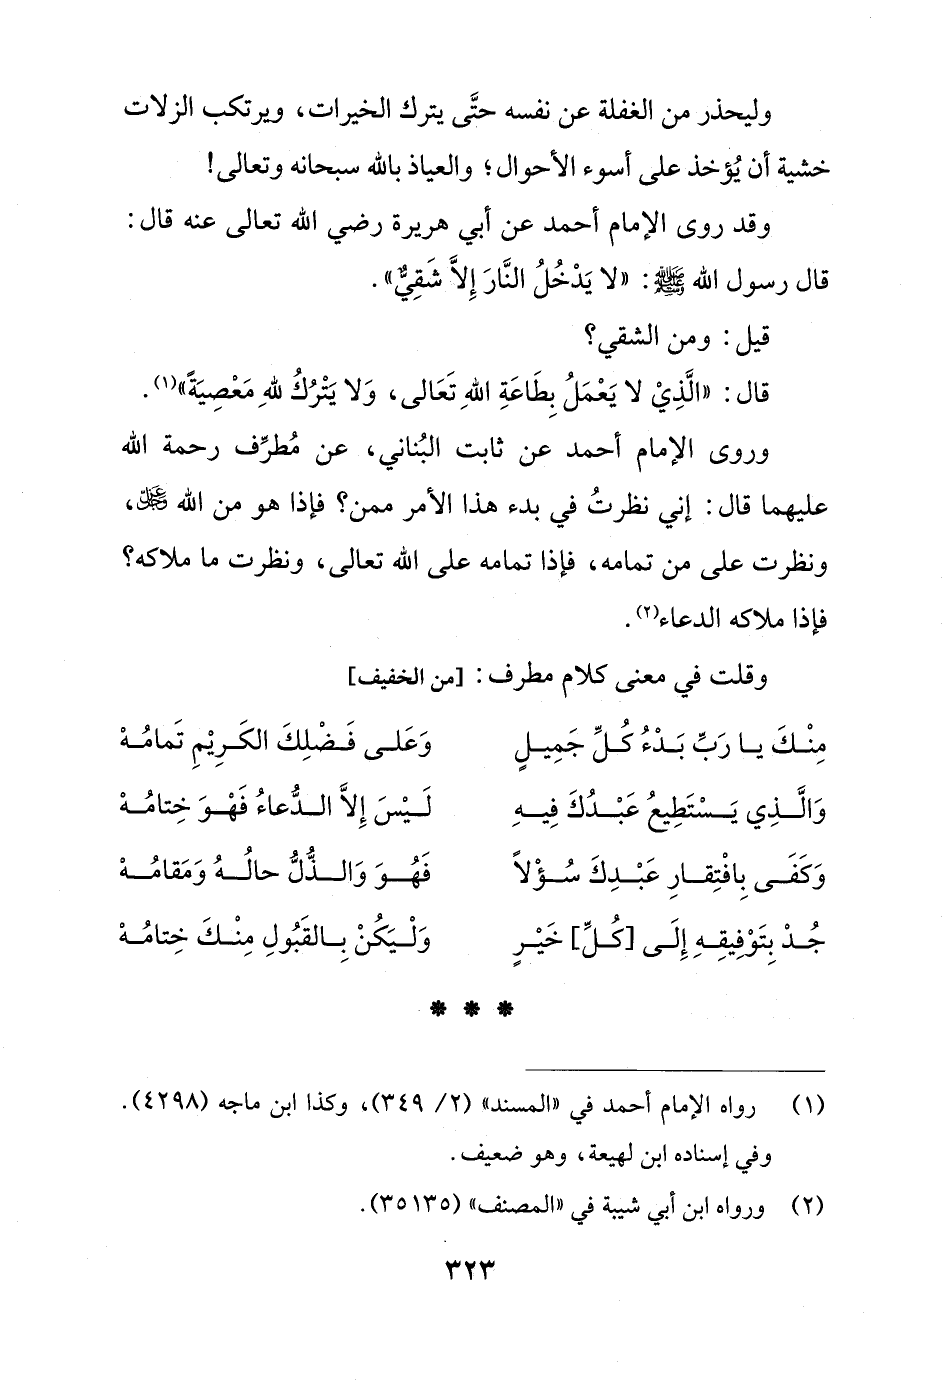 وليحذر من الغفلة عن نفسه حتَّى يترك الخيرات، ويرتكب الزلات
خشية أن يُؤخذ على أسوء الأحوال؛ والعياذ بالله سبحانه وتعالى!
وقد روى الإمام أحمد عن أبي هريرة رضي الله تعالى عنه قال:
قال رسول الله ﷺ: «لا يَدْخُلُ النَّارَ إِلاَّ شَقِيٌّ».
قيل: ومن الشقي؟
قال: «الَّذِيْ لا يَعْمَلُ بِطَاعَةِ اللهِ تَعَالى، وَلا يَتْرُكُ للهِ مَعْصِيَةً»(١).
وروى الإمام أحمد عن ثابت البُناني، عن مُطرِّف رحمة الله
عليهما قال: إني نظرتُ في بدء هذا الأمر ممن؟ فإذا هو من الله ﷻ،
ونظرت على من تمامه، فإذا تمامه على الله تعالى، ونظرت ما ملاكه؟
فإذا ملاكه الدعاء(٢).
وقلت في معنى كلام مطرف: [من الخفيف]
مِنْـكَ يـا رَبِّ بَـدْءُ كُـلِّ جَمِيـلٍ وَعَلـى فَـضْلِكَ الكَـرِيْمِ تَمامُـهْ
وَالَّـذِي يَـسْتَطِيعُ عَبْـدُكَ فِيـهِ لَيْسَ إِلاَّ الـدُّعاءُ فَهْـوَ خِتامُـهْ
وَكَفَـى بِافْتِقـارِ عَبْـدِكَ سُـؤْلاً فَهُـوَ وَالـذُّلُّ حالُـهُ وَمَقامُـهْ
جُـدْ بِتَوْفِيقِـهِ إِلَـى [كُـلِّ] خَيْـرٍ وَلْـيَكُنْ بِـالقَبُولِ مِنْـكَ خِتامُـهْ
* * *
(١) رواه الإمام أحمد في «المسند» (٢/ ٣٤٩)، وكذا ابن ماجه (٤٢٩٨).
وفي إسناده ابن لهيعة، وهو ضعيف.
(٢) ورواه ابن أبي شيبة في «المصنف» (٣٥١٣٥).
٣٢٣